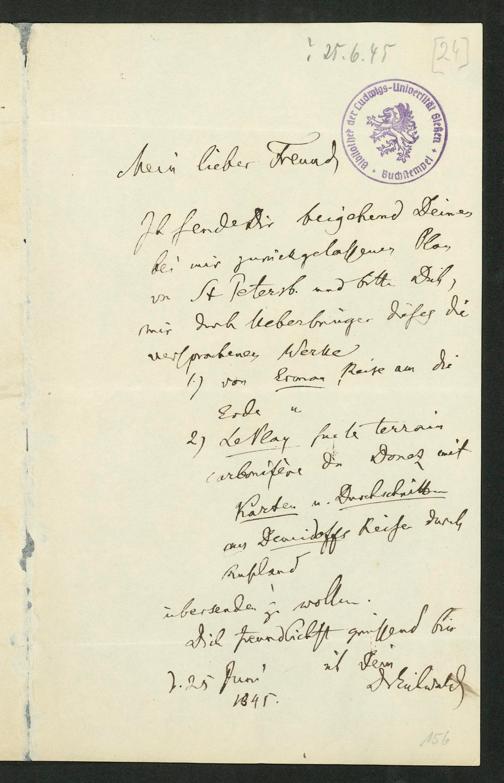 : 25.6.45
[24]
Bibliothek der Ludwigs-Universität Gießen
Buchstempel
Mein lieber Freund
Ich sende Dir beigehend Deinen
bei mir zurückgelassenen Plan
von St Petersb. und bitte Dich,
mir durch Ueberbringer dieses die
versprochenen Werke
1.) von Erman, Reise um die
Erde
2) LePlay sur le terrain
carbonifère du Donez mit
Karten u. Durchschnitten
aus Demidoffs Reise durch
Rußland
übersenden zu wollen.
Dich freundlichst grüssend bin
ich Dein
d. 25 Juni
DrEichwald
1845.
156